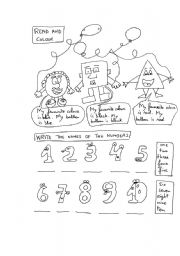 READ AND
COLOUR
My favourite colour
is blue. My balloon
is blue
My favourite colour
is black. My
balloon is black.
My favourite
colour is red. My
balloon is red.
WRITE THE NAMES OF THE NUMBERS
1 2 3 4 5
one
two
three
four
five
6 7 8 9 10
six
seven
eight
nine
ten